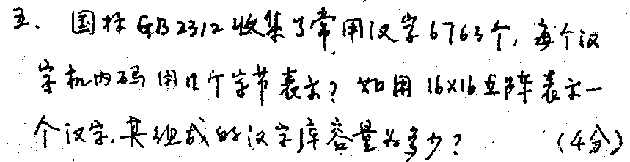 五、国标GB2312收集了常用汉字6763个,每个汉
字机内码用几个字节表示?如用16×16点阵表示一
个汉字,其组成的汉字库容量为多少?(4分)